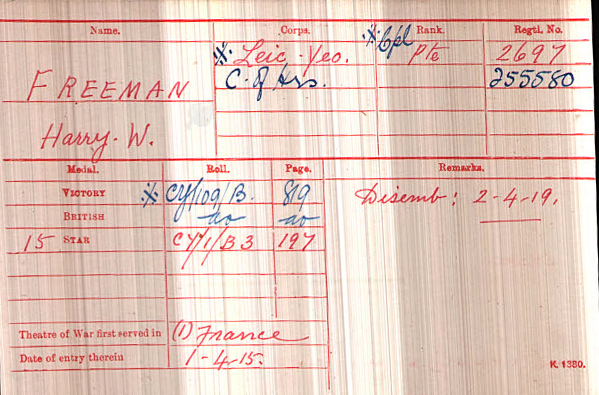 Name. Corps. Rank. Regtl. No.
FREEMAN ※ Leic. Yeo. ※ Cpl Pte 2697
C. of Hrs. 255580
Harry. W.
Medal. Roll. Page. Remarks.
VICTORY ※ CY/109/B. 819 Disemb: 2-4-19.
BRITISH do do
15 STAR CY/1/B3 197
Theatre of War first served in (1) France
Date of entry therein 1-4-15.
K. 1380.